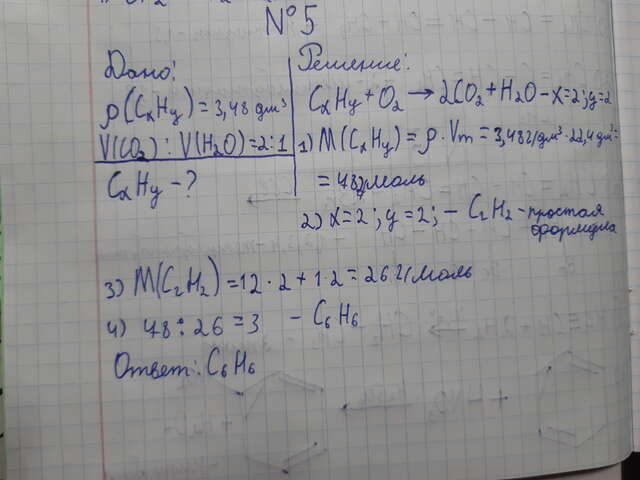 №5
Дано:
ρ(CxHy) = 3,48 дм³
V(CO₂) : V(H₂O) = 2:1
CxHy - ?
Решение:
CxHy + O₂ → 2CO₂ + H₂O - x=2; y=2
1) M(CxHy) = ρ · Vm = 3,48 г/дм³ · 22,4 дм³ =
= 78 г/моль
2) x=2; y=2; - C₂H₂ - простая
формула
3) M(C₂H₂) = 12 · 2 + 1 · 2 = 26 г/моль
4) 78 : 26 = 3 - C₆H₆
Ответ: C₆H₆